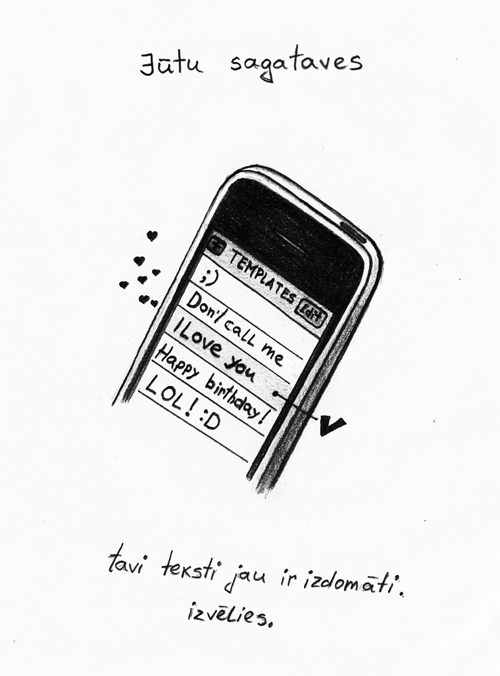 Jūtu sagataves
+ TEMPLATES Edit
;)
Don't call me
I Love you
Happy birthday!
LOL! :D
tavi teksti jau ir izdomāti.
izvēlies.